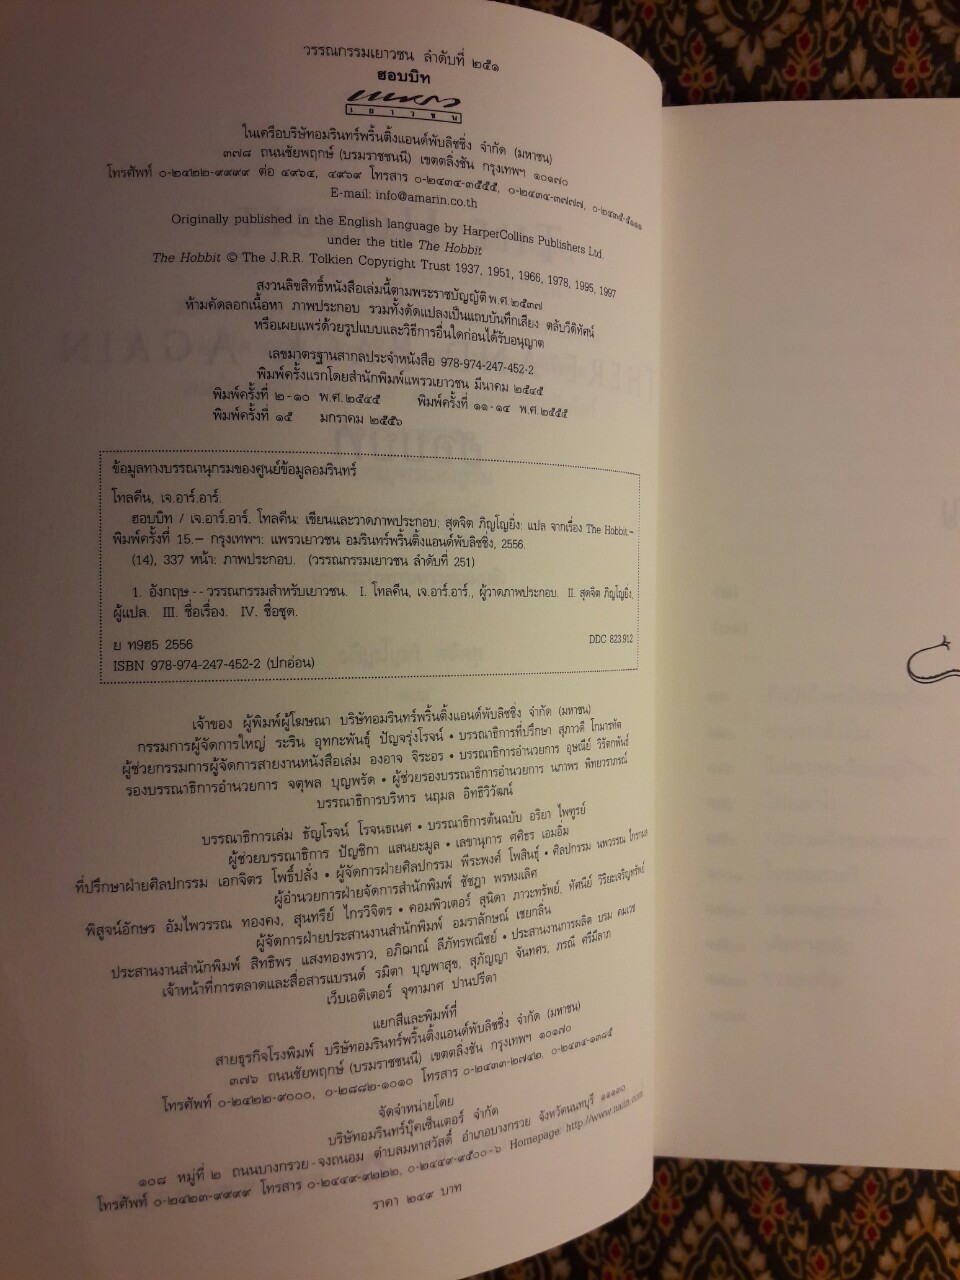 วรรณกรรมเยาวชน ลำดับที่ ๒๕๑
ฮอบบิท
แพรว
เยาวชน
ในเครือบริษัทอมรินทร์พริ้นติ้งแอนด์พับลิชชิ่ง จำกัด (มหาชน)
๓๗๘ ถนนชัยพฤกษ์ (บรมราชชนนี) เขตตลิ่งชัน กรุงเทพฯ ๑๐๑๗๐
โทรศัพท์ ๐-๒๔๒๒-๙๙๙๙ ต่อ ๔๙๖๔, ๔๙๖๙ โทรสาร ๐-๒๔๓๔-๓๕๕๕, ๐-๒๔๓๔-๓๗๗๗, ๐-๒๔๓๕-๕๑๑๑
E-mail: info@amarin.co.th
Originally published in the English language by HarperCollins Publishers Ltd.
under the title The Hobbit
The Hobbit © The J.R.R. Tolkien Copyright Trust 1937, 1951, 1966, 1978, 1995, 1997
สงวนลิขสิทธิ์หนังสือเล่มนี้ตามพระราชบัญญัติ พ.ศ.๒๕๓๗
ห้ามคัดลอกเนื้อหา ภาพประกอบ รวมทั้งดัดแปลงเป็นแถบบันทึกเสียง ตลับวีดิทัศน์
หรือเผยแพร่ด้วยรูปแบบและวิธีการอื่นใดก่อนได้รับอนุญาต
เลขมาตรฐานสากลประจำหนังสือ 978-974-247-452-2
พิมพ์ครั้งแรกโดยสำนักพิมพ์แพรวเยาวชน มีนาคม ๒๕๔๕
พิมพ์ครั้งที่ ๒-๑๐ พ.ศ.๒๕๔๕ พิมพ์ครั้งที่ ๑๑-๑๔ พ.ศ.๒๕๕๕
พิมพ์ครั้งที่ ๑๕ มกราคม ๒๕๕๖
ข้อมูลทางบรรณานุกรมของศูนย์ข้อมูลอมรินทร์
โทลคีน, เจ.อาร์.อาร์.
ฮอบบิท / เจ.อาร์.อาร์. โทลคีน: เขียนและวาดภาพประกอบ; สุดจิต ภิญโญยิ่ง: แปล จากเรื่อง The Hobbit.–
พิมพ์ครั้งที่ 15.– กรุงเทพฯ: แพรวเยาวชน อมรินทร์พริ้นติ้งแอนด์พับลิชชิ่ง, 2556.
(14), 337 หน้า: ภาพประกอบ. (วรรณกรรมเยาวชน ลำดับที่ 251)
1. อังกฤษ -- วรรณกรรมสำหรับเยาวชน. I. โทลคีน, เจ.อาร์.อาร์., ผู้วาดภาพประกอบ. II. สุดจิต ภิญโญยิ่ง,
ผู้แปล. III. ชื่อเรื่อง. IV. ชื่อชุด.
ย ท9ฮ5 2556 DDC 823.912
ISBN 978-974-247-452-2 (ปกอ่อน)
เจ้าของ ผู้พิมพ์ผู้โฆษณา บริษัทอมรินทร์พริ้นติ้งแอนด์พับลิชชิ่ง จำกัด (มหาชน)
กรรมการผู้จัดการใหญ่ ระริน อุทกะพันธุ์ ปัญจรุ่งโรจน์ • บรรณาธิการที่ปรึกษา สุภาวดี โกมารทัต
ผู้ช่วยกรรมการผู้จัดการสายงานหนังสือเล่ม องอาจ จิระอร • บรรณาธิการอำนวยการ อุษณีย์ วิรัตกพันธ์
รองบรรณาธิการอำนวยการ จตุพล บุญพรัด • ผู้ช่วยรองบรรณาธิการอำนวยการ นภาพร พิทยวราภรณ์
บรรณาธิการบริหาร นฤมล อิทธิวิวัฒน์
บรรณาธิการเล่ม ธัญโรจน์ โรจนธเนศ • บรรณาธิการต้นฉบับ อริยา ไพฑูรย์
ผู้ช่วยบรรณาธิการ ปัญชิกา แสนยะมูล • เลขานุการ ศศิธร เอมอิ่ม
ที่ปรึกษาฝ่ายศิลปกรรม เอกจิตร โพธิ์ปลั่ง • ผู้จัดการฝ่ายศิลปกรรม พีระพงศ์ โพสินธุ์ • ศิลปกรรม นพวรรณ
ผู้อำนวยการฝ่ายจัดการสำนักพิมพ์ ชัชฎา พรหมเลิศ
พิสูจน์อักษร อัมไพวรรณ ทองคง, สุนทรีย์ ไกรวิจิตร • คอมพิวเตอร์ สุนิดา ภาวะทรัพย์, ทัศนีย์ วิริยะเจริญทรัพย์
ผู้จัดการฝ่ายประสานงานสำนักพิมพ์ อมราลักษณ์ เชยกลิ่น
ประสานงานสำนักพิมพ์ สิทธิพร แสงทองพราว, อภิฌาณ์ ลีภัทรพณิชย์ • ประสานงานการผลิต
เจ้าหน้าที่การตลาดและสื่อสารแบรนด์ รมิตา บุญพาสุข, สุภัญญา จันทศร, ภรณี ศรีมีลาภ
เว็บเอดิเตอร์ จุฑามาศ ปานปรีดา
แยกสีและพิมพ์ที่
สายธุรกิจโรงพิมพ์ บริษัทอมรินทร์พริ้นติ้งแอนด์พับลิชชิ่ง จำกัด (มหาชน)
๓๗๖ ถนนชัยพฤกษ์ (บรมราชชนนี) เขตตลิ่งชัน กรุงเทพฯ ๑๐๑๗๐
โทรศัพท์ ๐-๒๔๒๒-๙๐๐๐, ๐-๒๘๘๒-๑๐๑๐ โทรสาร ๐-๒๔๓๓-๒๗๔๒, ๐-๒๔๓๔-๑๓๘๕
จัดจำหน่ายโดย
บริษัทอมรินทร์บุ๊คเซ็นเตอร์ จำกัด
๑๐๘ หมู่ที่ ๒ ถนนบางกรวย-จงถนอม ตำบลมหาสวัสดิ์ อำเภอบางกรวย จังหวัดนนทบุรี ๑๑๑๓๐
โทรศัพท์ ๐-๒๔๒๓-๙๙๙๙ โทรสาร ๐-๒๔๔๙-๙๒๒๒, ๐-๒๔๔๙-๙๕๐๐-๖ Homepage: http://www.naiin.com
ราคา ๒๔๙ บาท